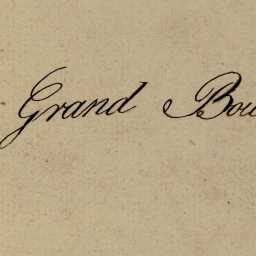 Grand Bou